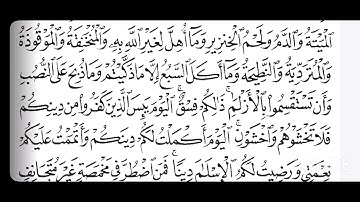 ٱلْمَيْتَةُ وَٱلدَّمُ وَلَحْمُ ٱلْخِنزِيرِ وَمَآ أُهِلَّ لِغَيْرِ ٱللَّهِ بِهِۦ وَٱلْمُنْخَنِقَةُ وَٱلْمَوْقُوذَةُ
وَٱلْمُتَرَدِّيَةُ وَٱلنَّطِيحَةُ وَمَآ أَكَلَ ٱلسَّبُعُ إِلَّا مَا ذَكَّيْتُمْ وَمَا ذُبِحَ عَلَى ٱلنُّصُبِ
وَأَن تَسْتَقْسِمُوا۟ بِٱلْأَزْلَٰمِ ۚ ذَٰلِكُمْ فِسْقٌ ۗ ٱلْيَوْمَ يَئِسَ ٱلَّذِينَ كَفَرُوا۟ مِن دِينِكُمْ
فَلَا تَخْشَوْهُمْ وَٱخْشَوْنِ ۚ ٱلْيَوْمَ أَكْمَلْتُ لَكُمْ دِينَكُمْ وَأَتْمَمْتُ عَلَيْكُمْ
نِعْمَتِى وَرَضِيتُ لَكُمُ ٱلْإِسْلَٰمَ دِينًا ۚ فَمَنِ ٱضْطُرَّ فِى مَخْمَصَةٍ غَيْرَ مُتَجَانِفٍ